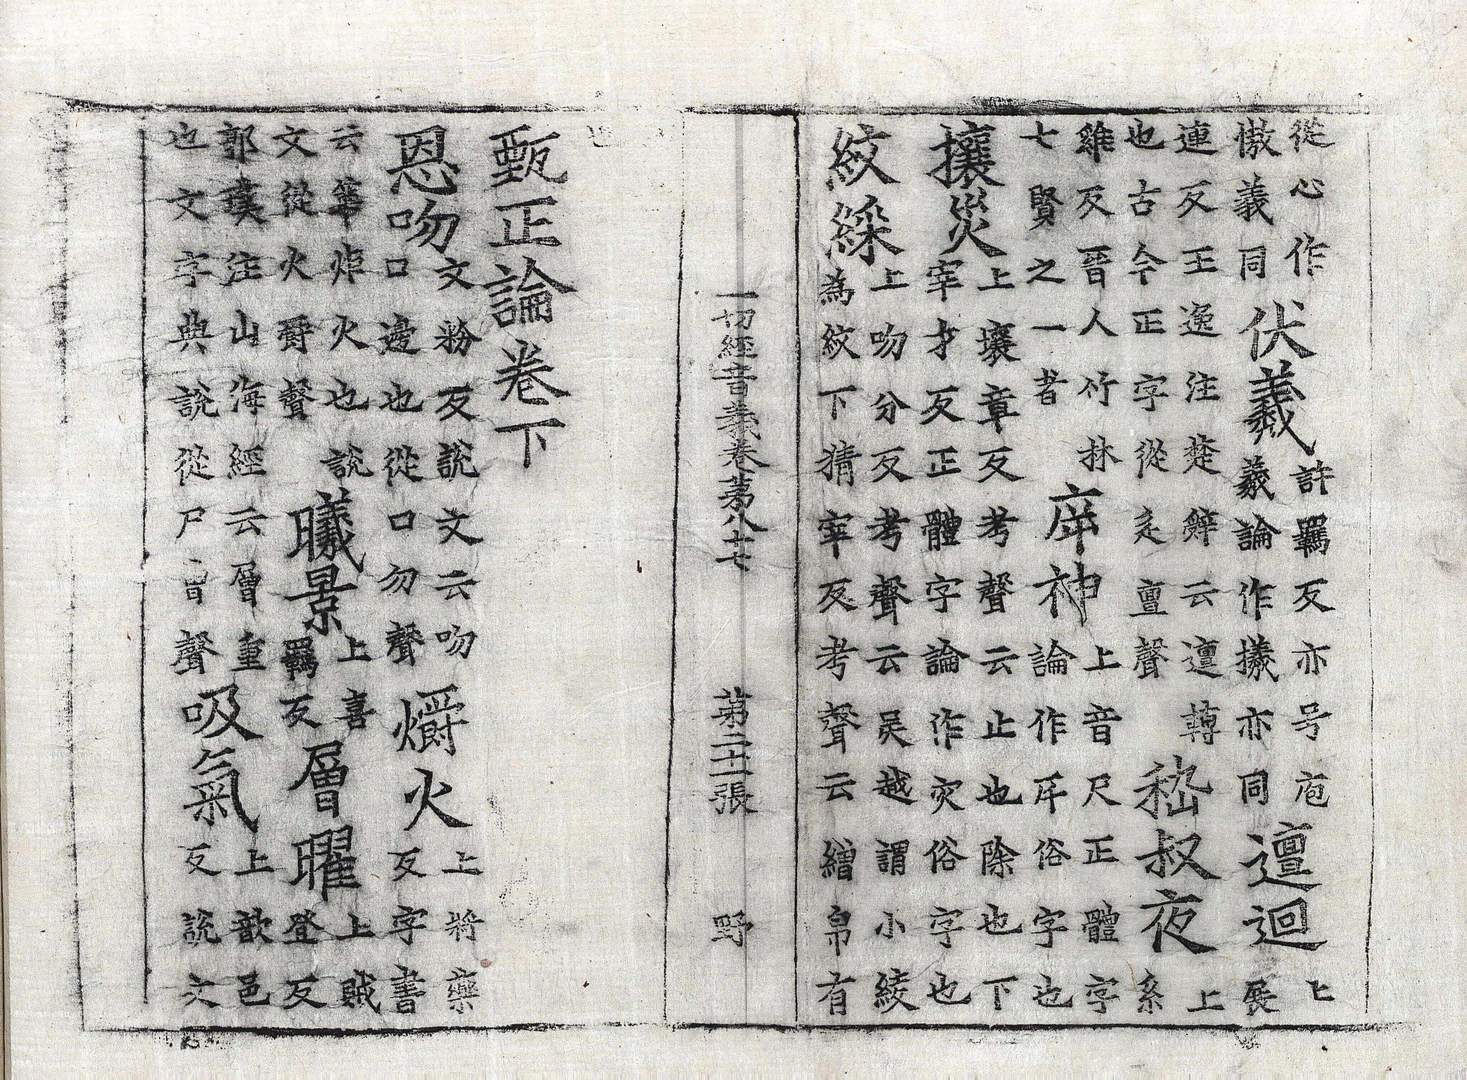 從心作
傲義同
伏羲
許羈反亦号庖
羲論作㩲亦同
邅迴
上
展
連反王逸注楚辭云邅轉
也古今正字從辵亶聲
嵇叔夜
上
系
雞反晉人竹林
七賢之一者
㡿神
上音尺正體字
論作斥俗字也
攘災
上壤章反考聲云止也除也下
宰才反正體字論作灾俗字也
紋綵
上吻分反考聲云吴越謂小綾
為紋下猜宰反考聲云繒帛有
一切經音義卷第八十七 第二十一張 野
甄正論卷下
恩吻
文粉反說文云吻
口邊也從口勿聲
爝火
上將藥
反字書
云葦炬火也說
文從火爵聲
曦景
上喜
羈反
層曜
上賊
登反
郭璞注山海經云層重
也文字典說從尸曾聲
吸氣
上歆邑
反說文